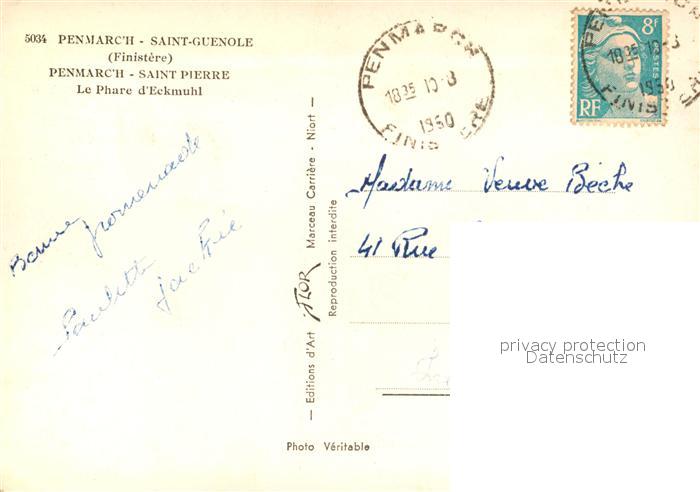 5034 PENMARC'H - SAINT-GUENOLE
(Finistère)
PENMARC'H - SAINT PIERRE
Le Phare d'Eckmuhl
Bonne promenade
Paulette
Jackie
— Editions d'Art JFLOR Marceau Carrière - Niort —
Reproduction interdite
Photo Véritable
PENMARCH
18 35 10-8
1950
FINISTERE
8F
POSTES
RF
18 35 10-8
1950
FINIS
Madame Veuve Bèche
41 Rue
privacy protection
Datenschutz